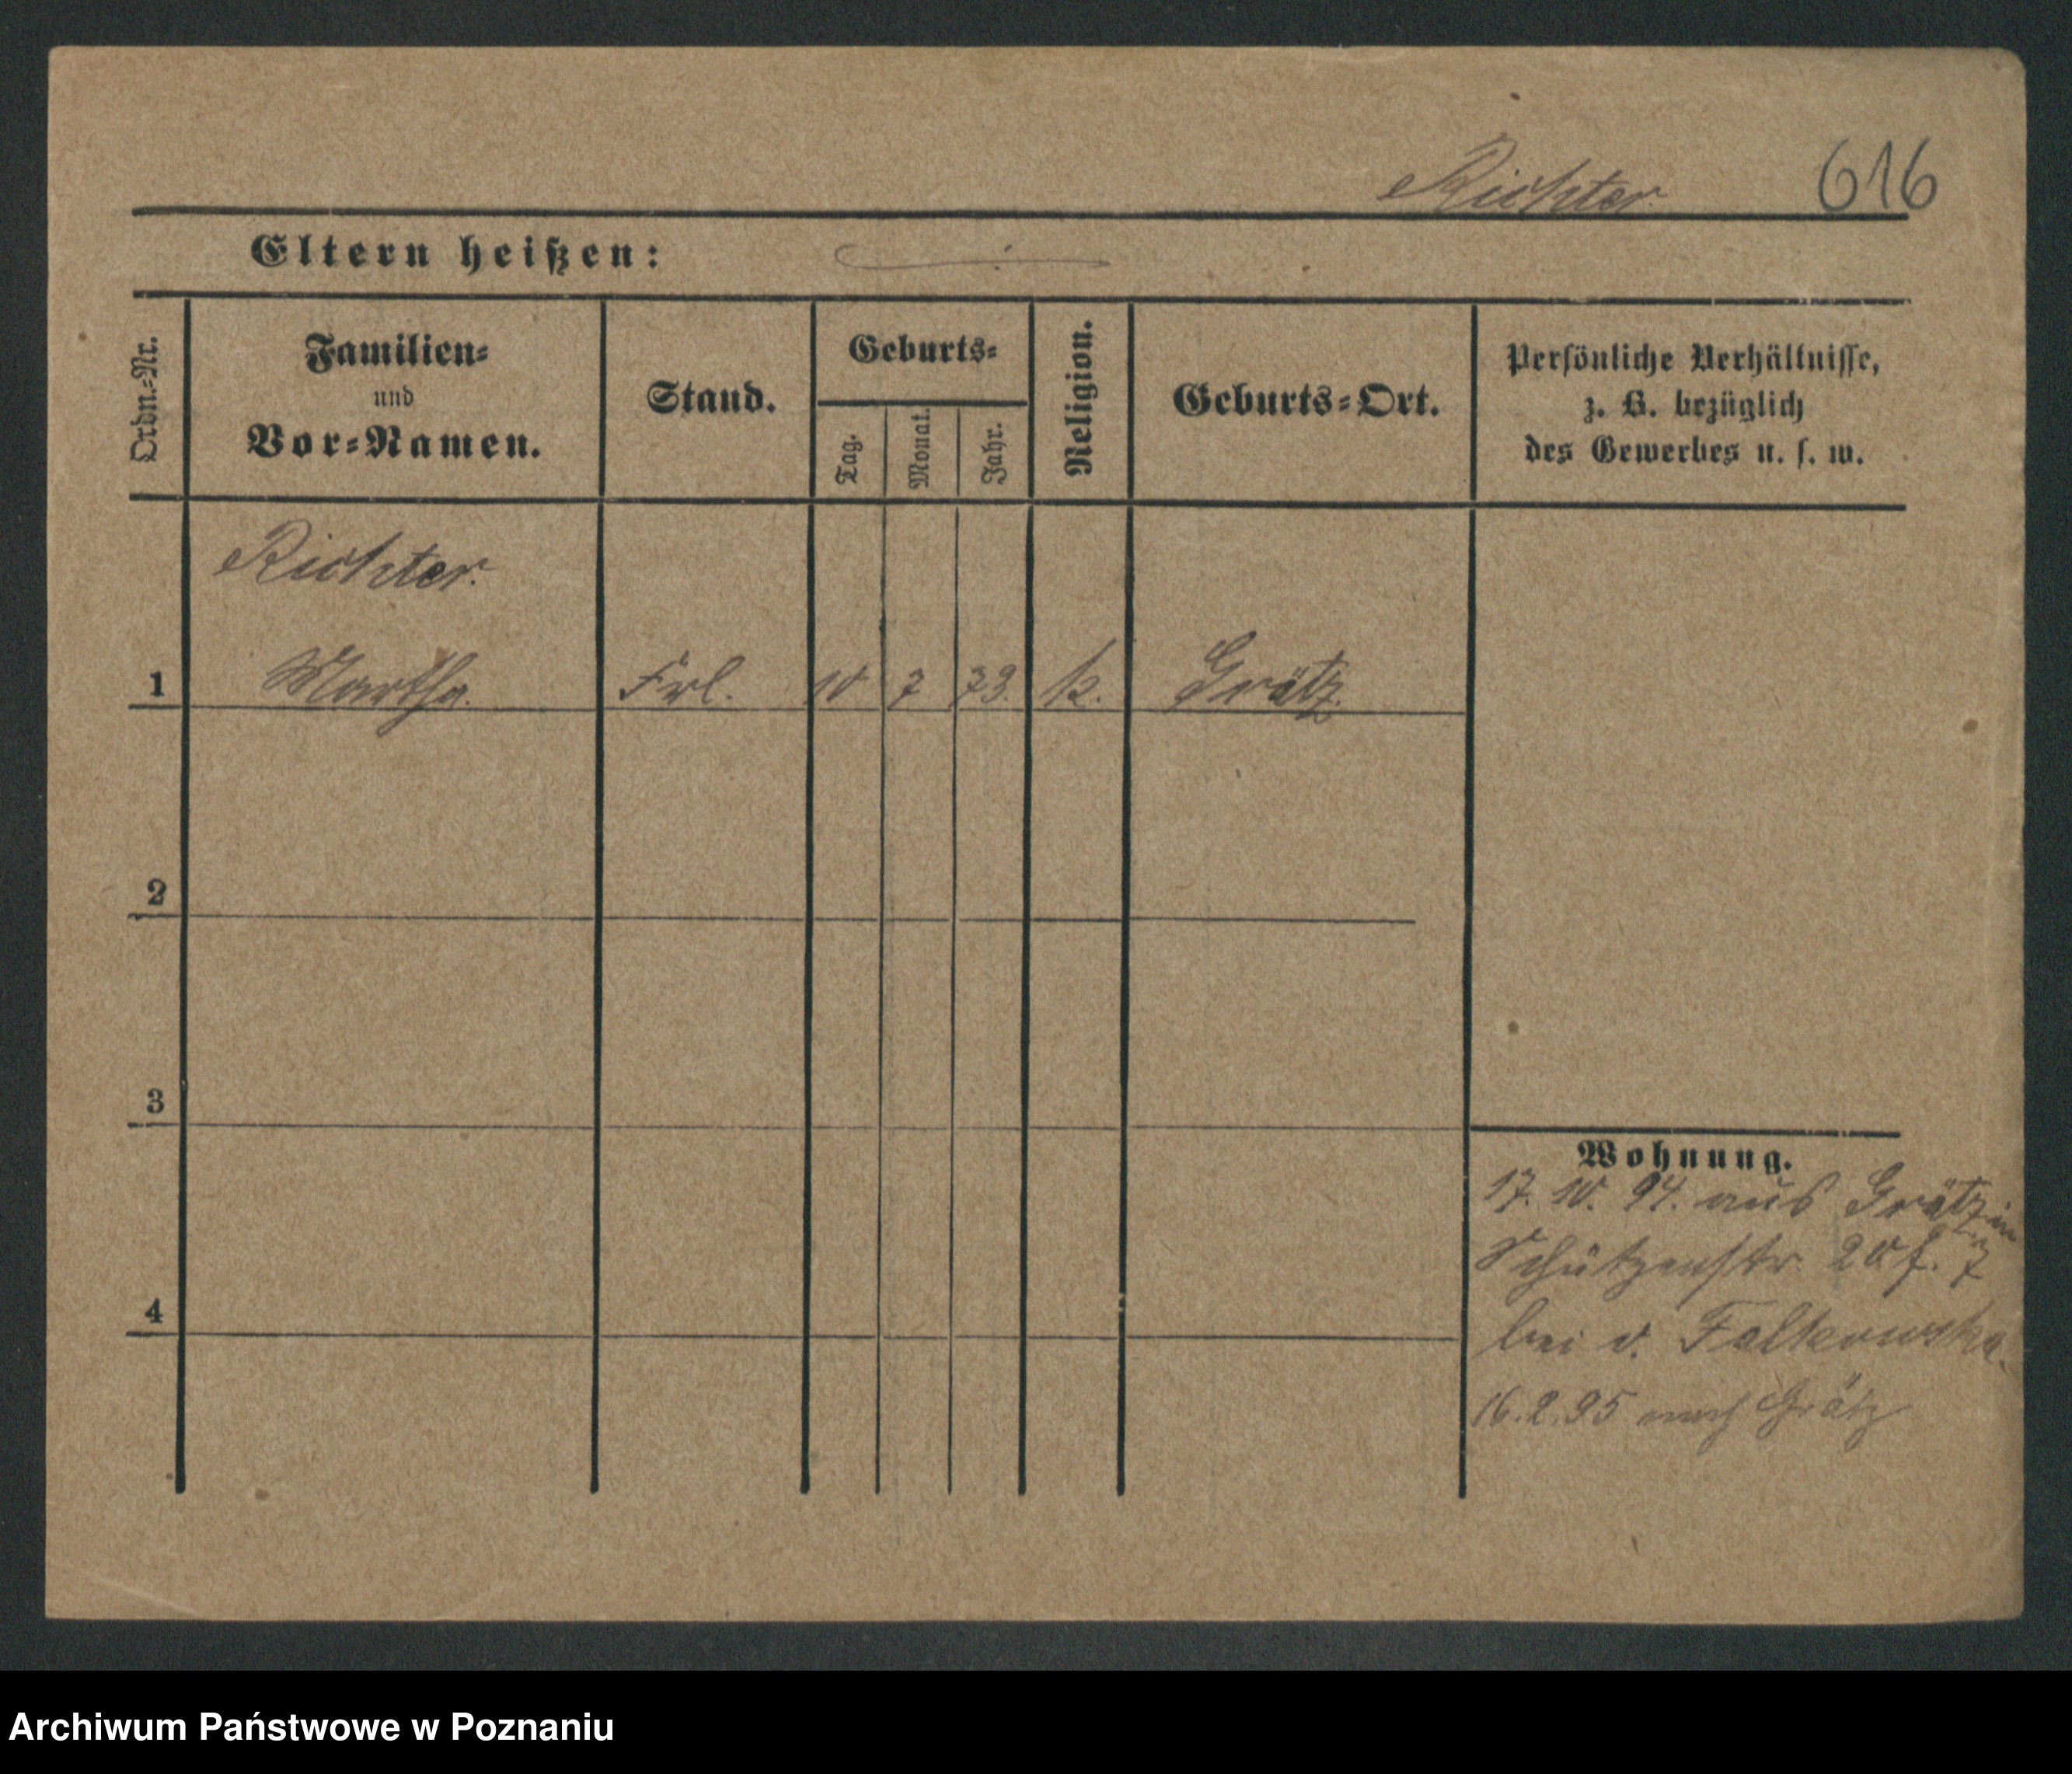 Richter 616
Eltern heißen:
Ordn.=Nr.
Familien=
und
Vor=Namen.
Stand.
Geburts=
Tag.
Monat.
Jahr.
Religion.
Geburts=Ort.
Persönliche Verhältnisse,
z. B. bezüglich
des Gewerbes u. s. w.
Richter.
1 Martha. Frl. 10 7 73. k. Grätz.
2
3
4
Wohnung.
17. 10. 94. aus Grätz in
Schützenstr. 20
bei v. Falkowska.
16.2.95 nach Grätz
Archiwum Państwowe w Poznaniu